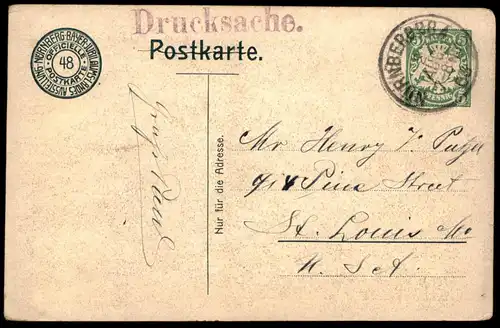 Drucksache.
Postkarte.
NÜRNBERG·BAYER·JUBILÄUMS-LANDES-AUSSTELLUNG
OFFICIELLE
48
POSTKARTE
NÜRNBERG
PFENNIG
Nur für die Adresse.
Mr Henry
914 Pine Street
St. Louis Mo
U. S. A.